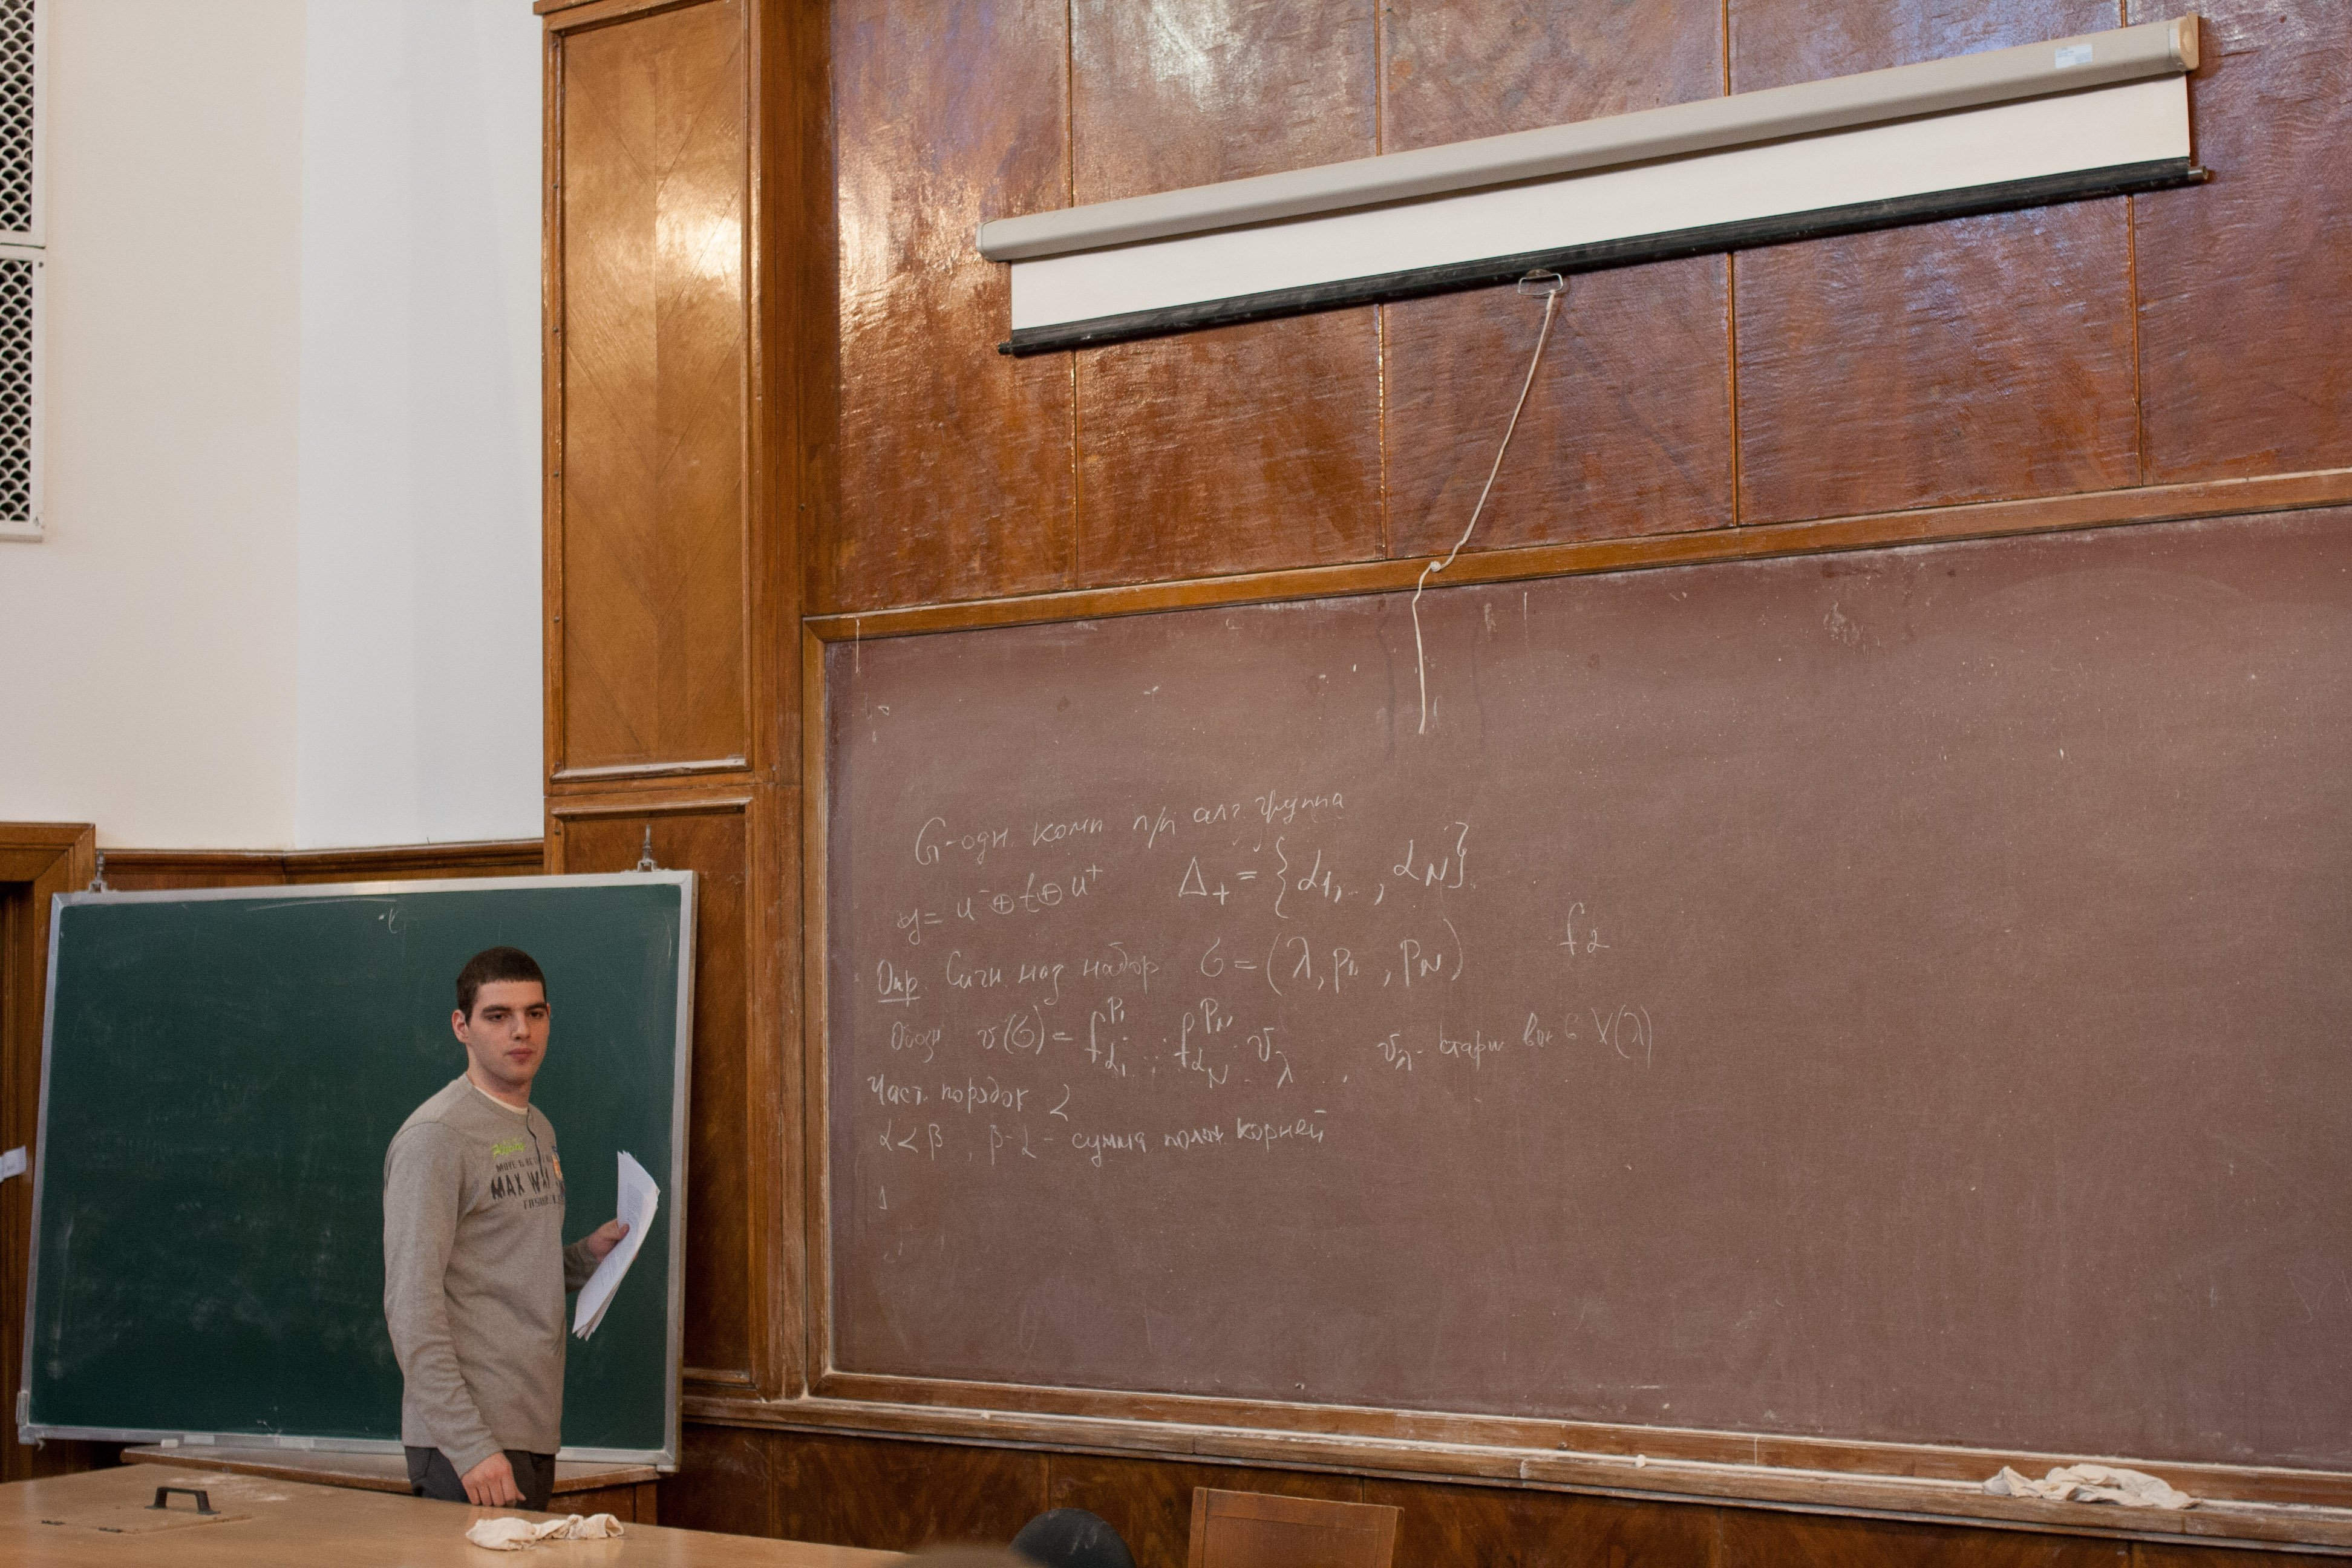 G-одн. комп п/п алг. группа
𝔤 = u⁻ ⊕ t ⊕ u⁺ Δ₊ = {α₁, .. , α_N}
Опр. Сигн наз набор σ = (λ, p₁, , p_N) f_α
Обозн v(σ) = f_{α₁}^{p₁} ... f_{α_N}^{p_N} · v_λ , v_λ - старш. век в V(λ)
Част. порядок <
α < β , β - α - сумма полож корней
1
MAX